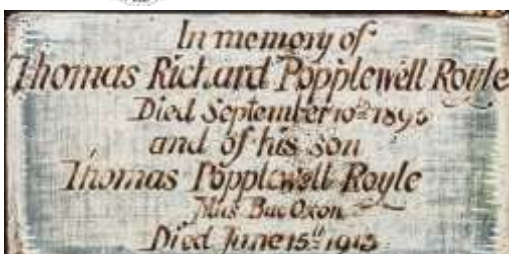 In memory of
Thomas Richard Popplewell Royle
Died September 10th
and of his son
Thomas Popplewell Royle
Mus Bac Oxon
Died June 15th